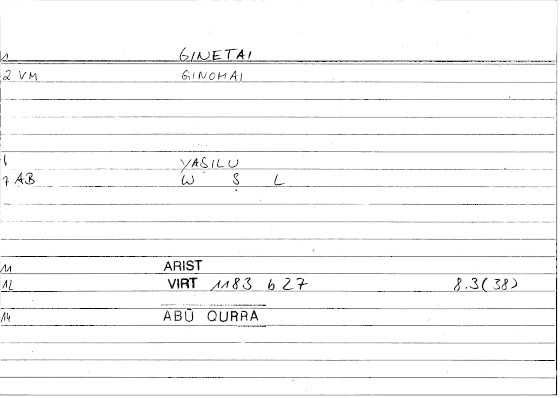 1 GINETAI
2 VM GINOMAI
6 YAṢILU
7 AB W Ṣ L
11 ARIST
12 VIRT 1183 b 27 8.3(38)
14 ABŪ QURRA